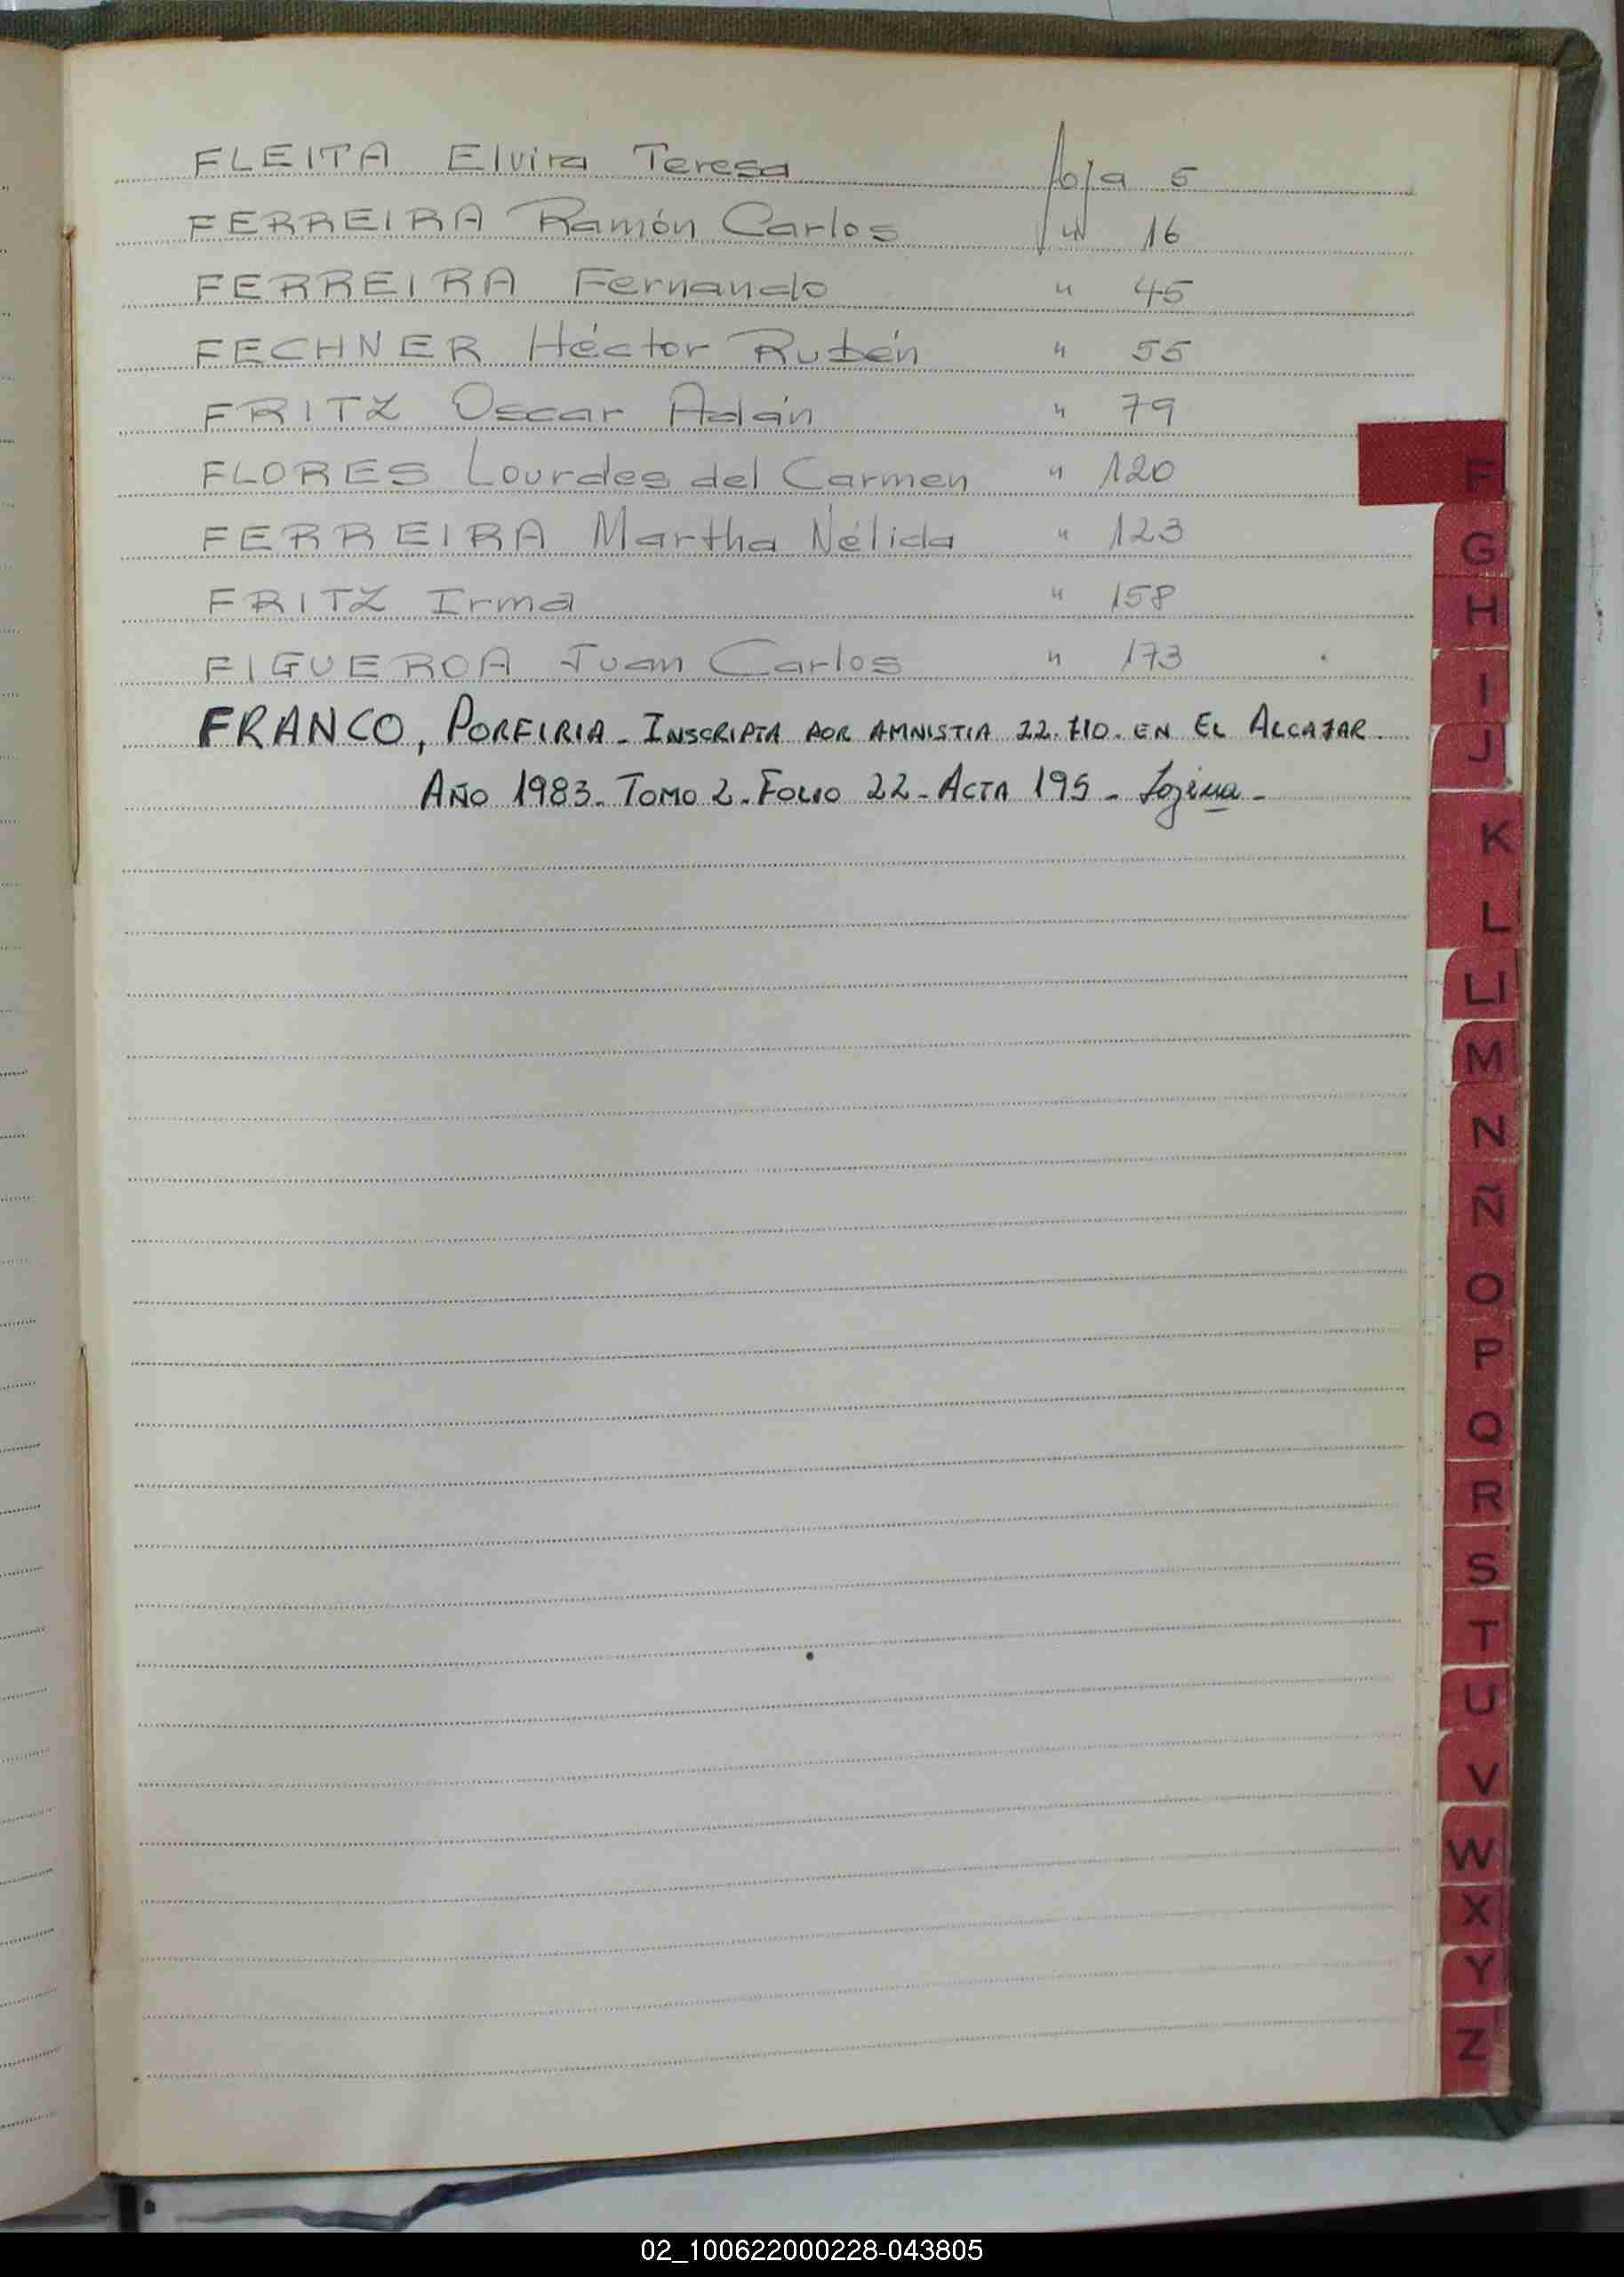 FLEITA Elvira Teresa foja 5
FERREIRA Ramón Carlos " 16
FERREIRA Fernando " 45
FECHNER Héctor Rubén " 55
FRITZ Oscar Adán " 79
FLORES Lourdes del Carmen " 120
FERREIRA Martha Nélida " 123
FRITZ Irma " 158
FIGUEROA Juan Carlos " 173
FRANCO, PORFIRIA - INSCRIPTA POR AMNISTIA 22.710. EN EL ALCAZAR.
AÑO 1983 - TOMO 2 - FOLIO 22 - ACTA 195 -
F
G
H
I
J
K
L
Ll
M
N
Ñ
O
P
Q
R
S
T
U
V
W
X
Y
Z
02_100622000228-043805